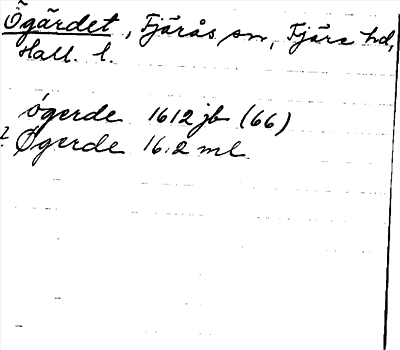 Ögärdet, Fjärås sn, Fjäre hd,
Hall. l.
øgerde 1612 jb (66)
? Øgerde 1612 ml